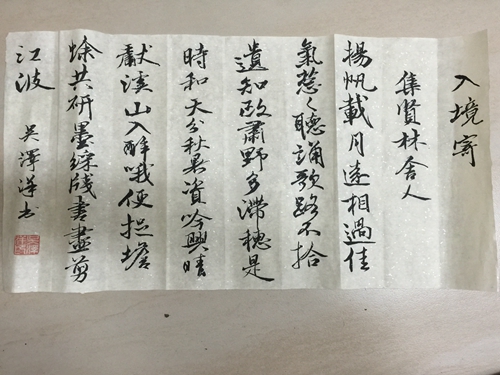 入境寄
集賢林舍人
揚帆載月遠相過佳
氣葱々聽誦歌路不拾
遺知政肅野多滯穗是
時和天分秋暑資吟興晴
獻溪山入醉哦便捉蟾
蜍共研墨綵牋書盡剪
江波 吳澤洋书